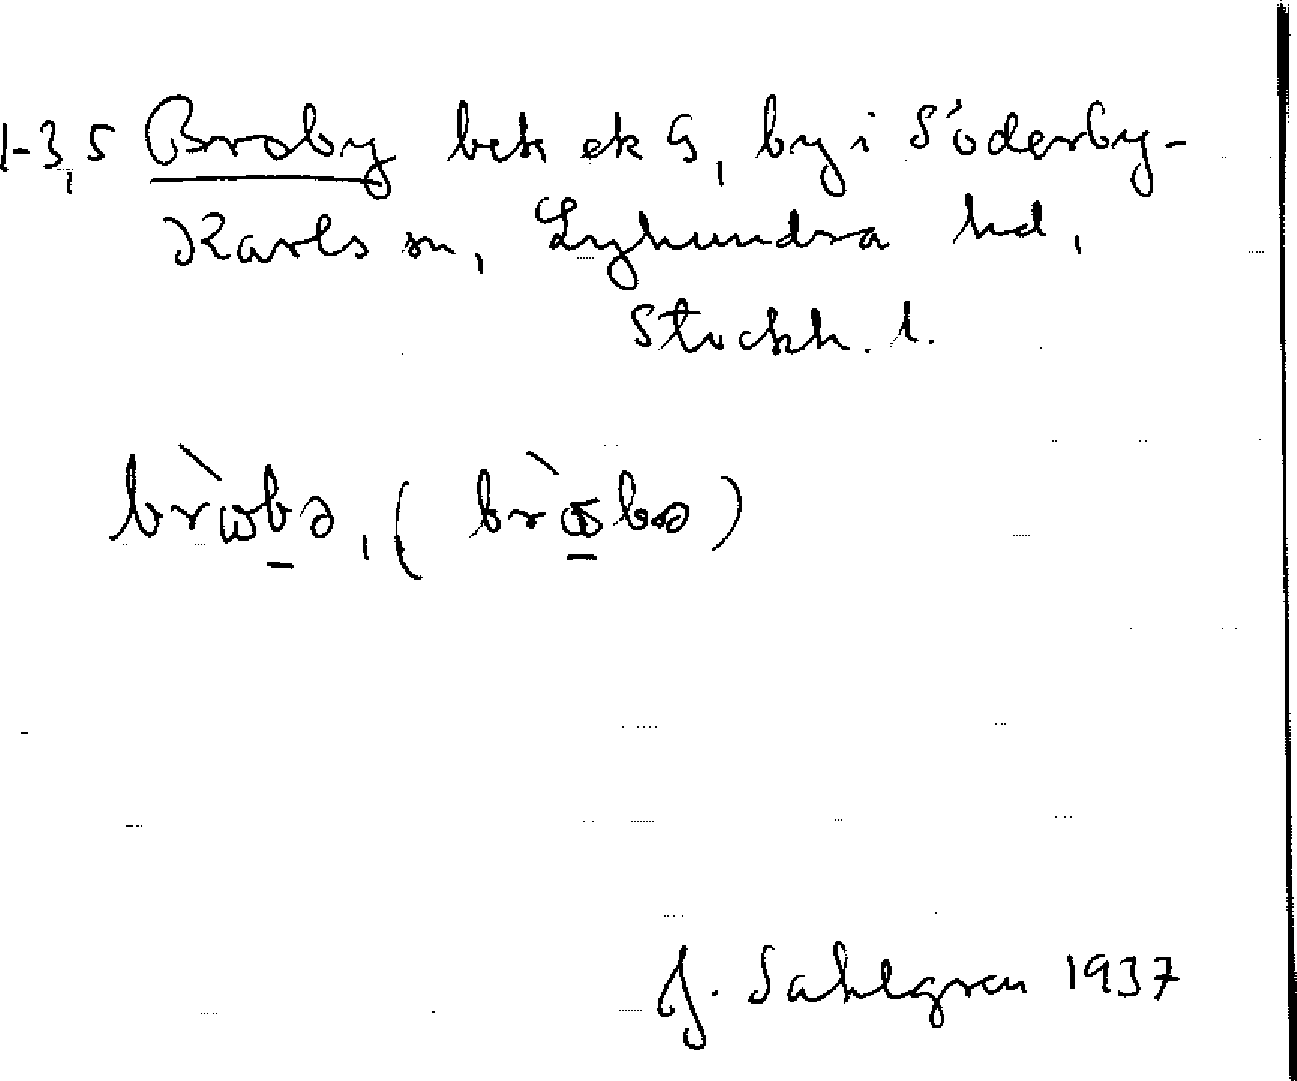 1-3,5 Broby bek ek G, by i Söderby-
Karls sn, Lyhundra hd,
Stockh. l.
brὼbə, (
J. Sahlgren 1937